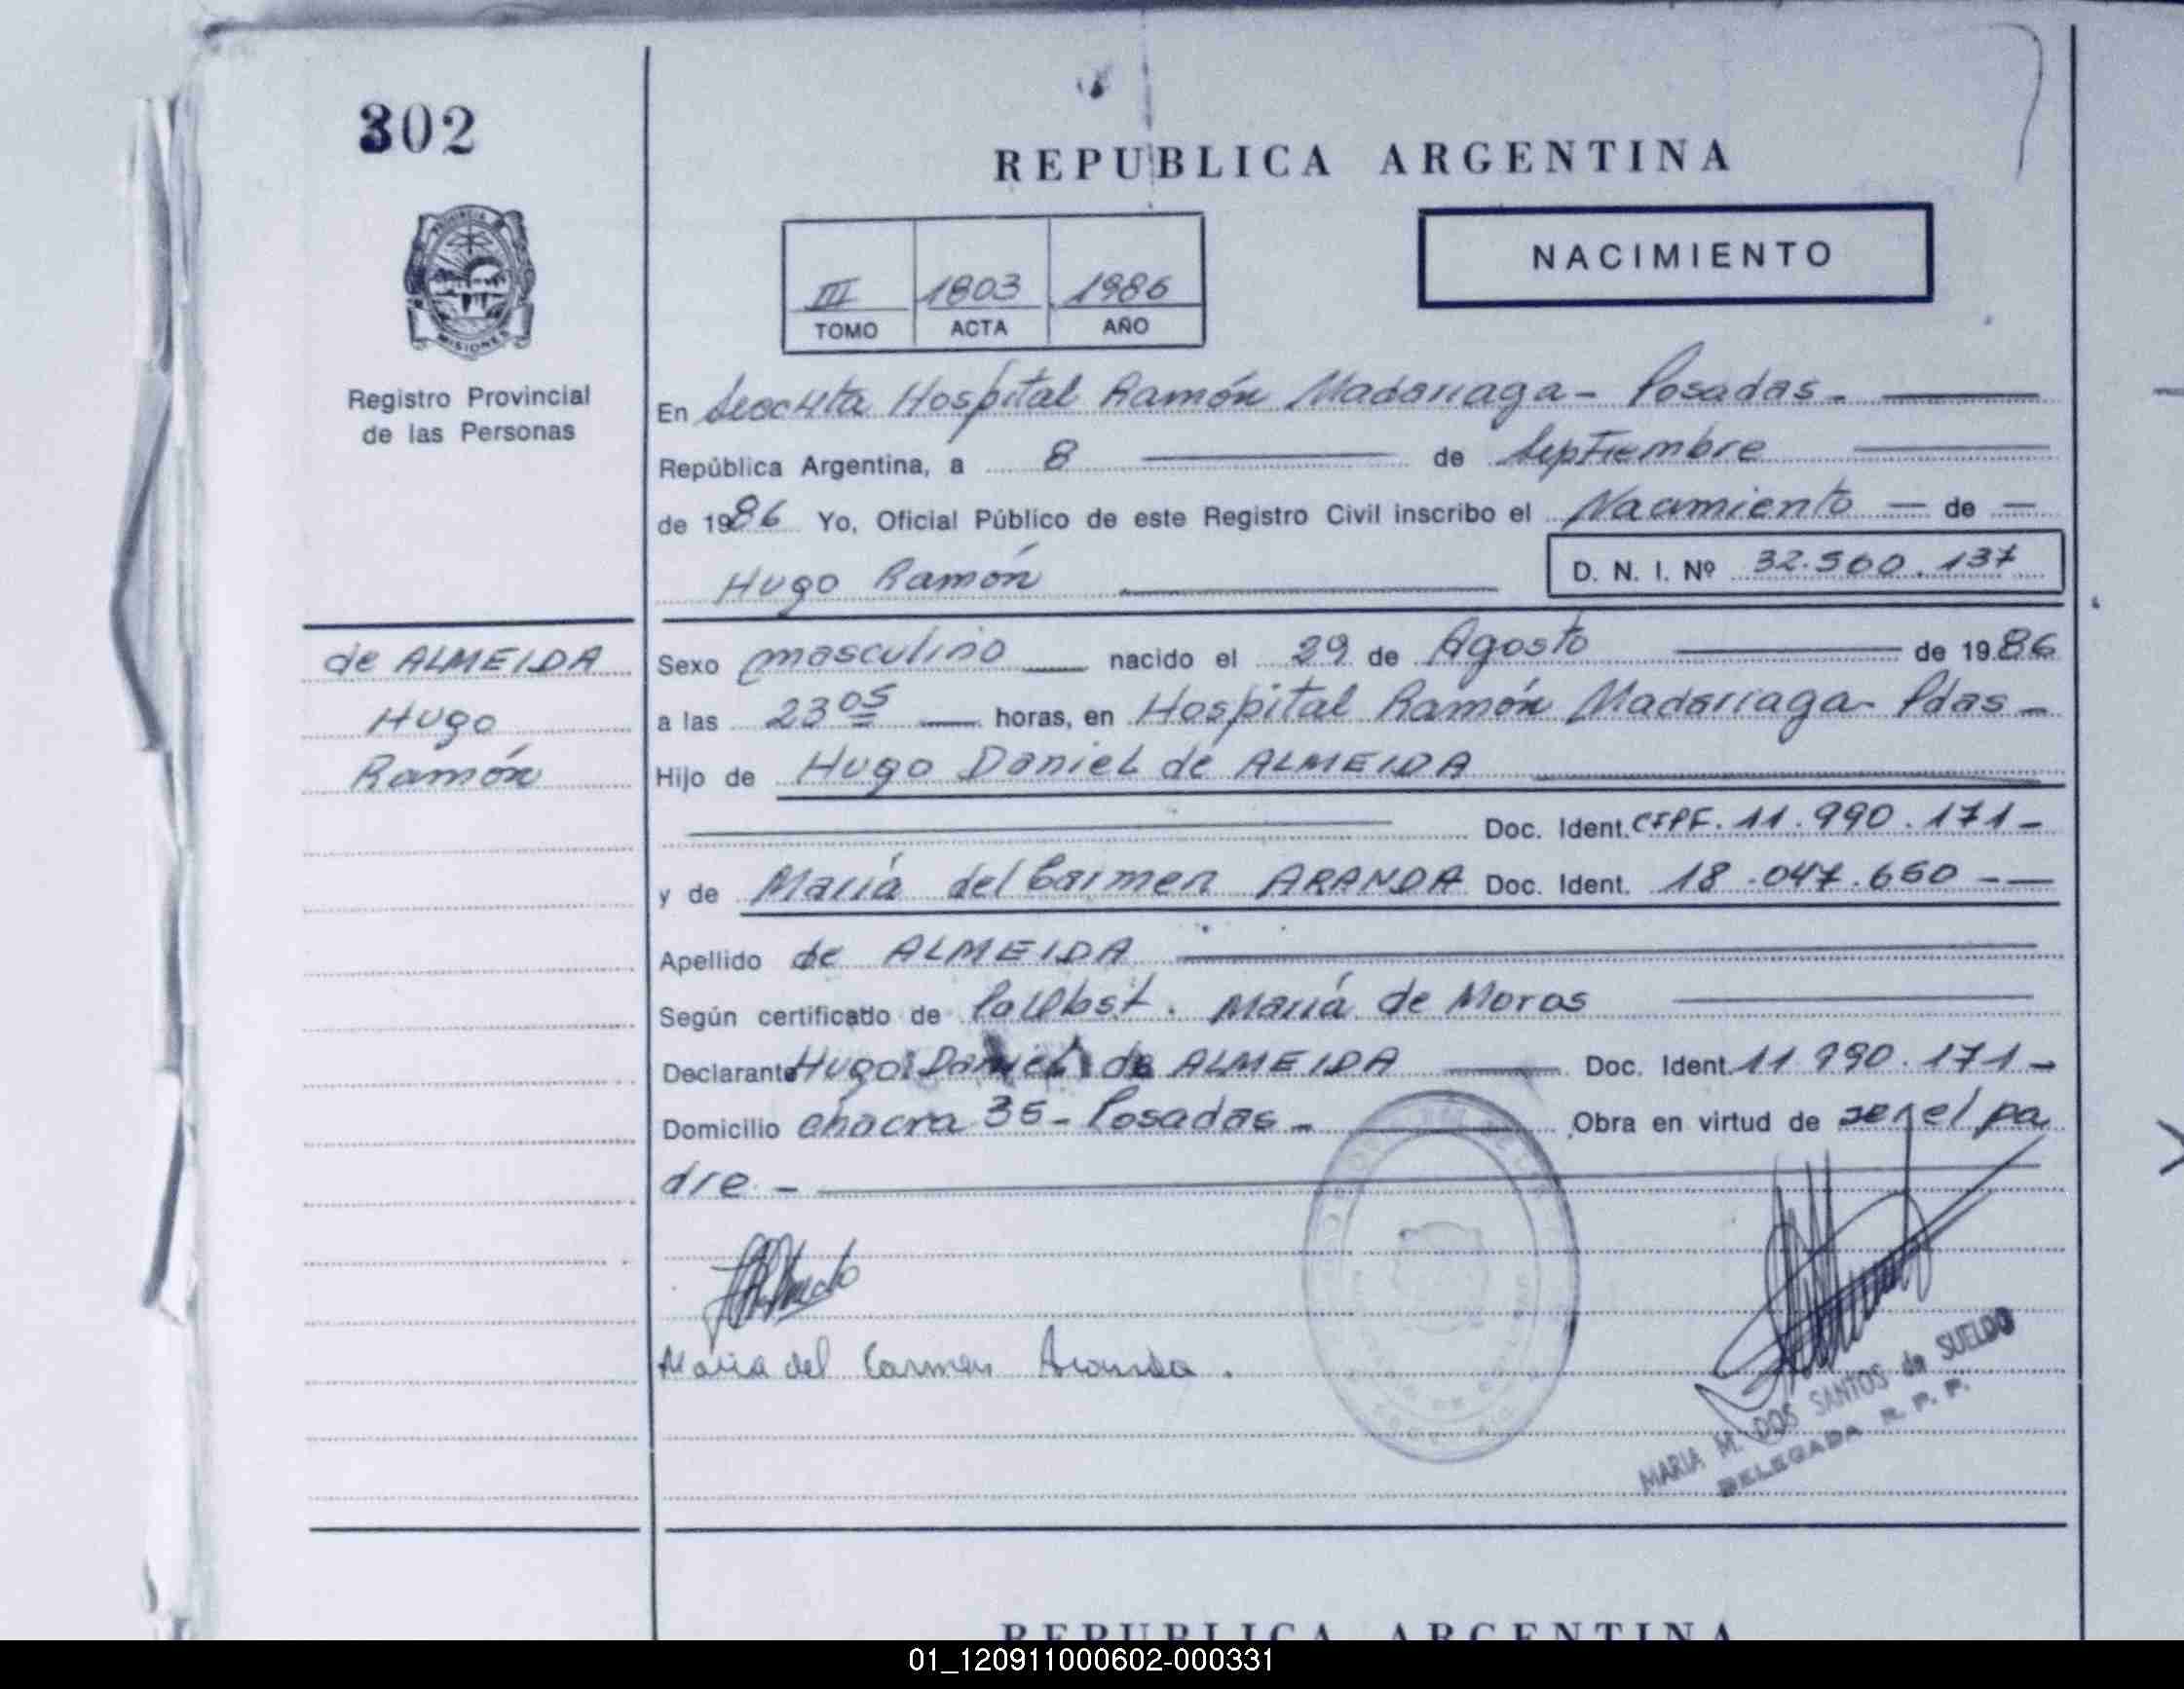 302
REPUBLICA ARGENTINA
PROVINCIA
MISIONES
Registro Provincial
de las Personas
NACIMIENTO
III 1803 1986
TOMO ACTA AÑO
En Hospital Ramón Madariaga - Posadas -
República Argentina, a 8 de Septiembre
de 1986 Yo, Oficial Público de este Registro Civil inscribo el Nacimiento — de —
Hugo Ramón D. N. I. Nº 32.560.137
de ALMEIDA
Hugo
Ramón
Sexo masculino nacido el 29 de Agosto de 1986
a las 23 05 horas, en Hospital Ramón Madariaga - Pdas -
Hijo de Hugo Daniel de ALMEIDA
Doc. Ident. 11.990.171 -
y de María del Carmen ARANDA Doc. Ident. 18.047.650 -
Apellido de ALMEIDA
Según certificado de María de Moros
Declarante Hugo Daniel de ALMEIDA Doc. Ident. 11 990.171 -
Domicilio chacra 35 - Posadas - Obra en virtud de ser el pa
dre -
Maria del Carmen Aranda.
MARIA M. DOS SANTOS de SUELDO
DELEGADA R. P. P.
REPUBLICA ARGENTINA
01_120911000602-000331